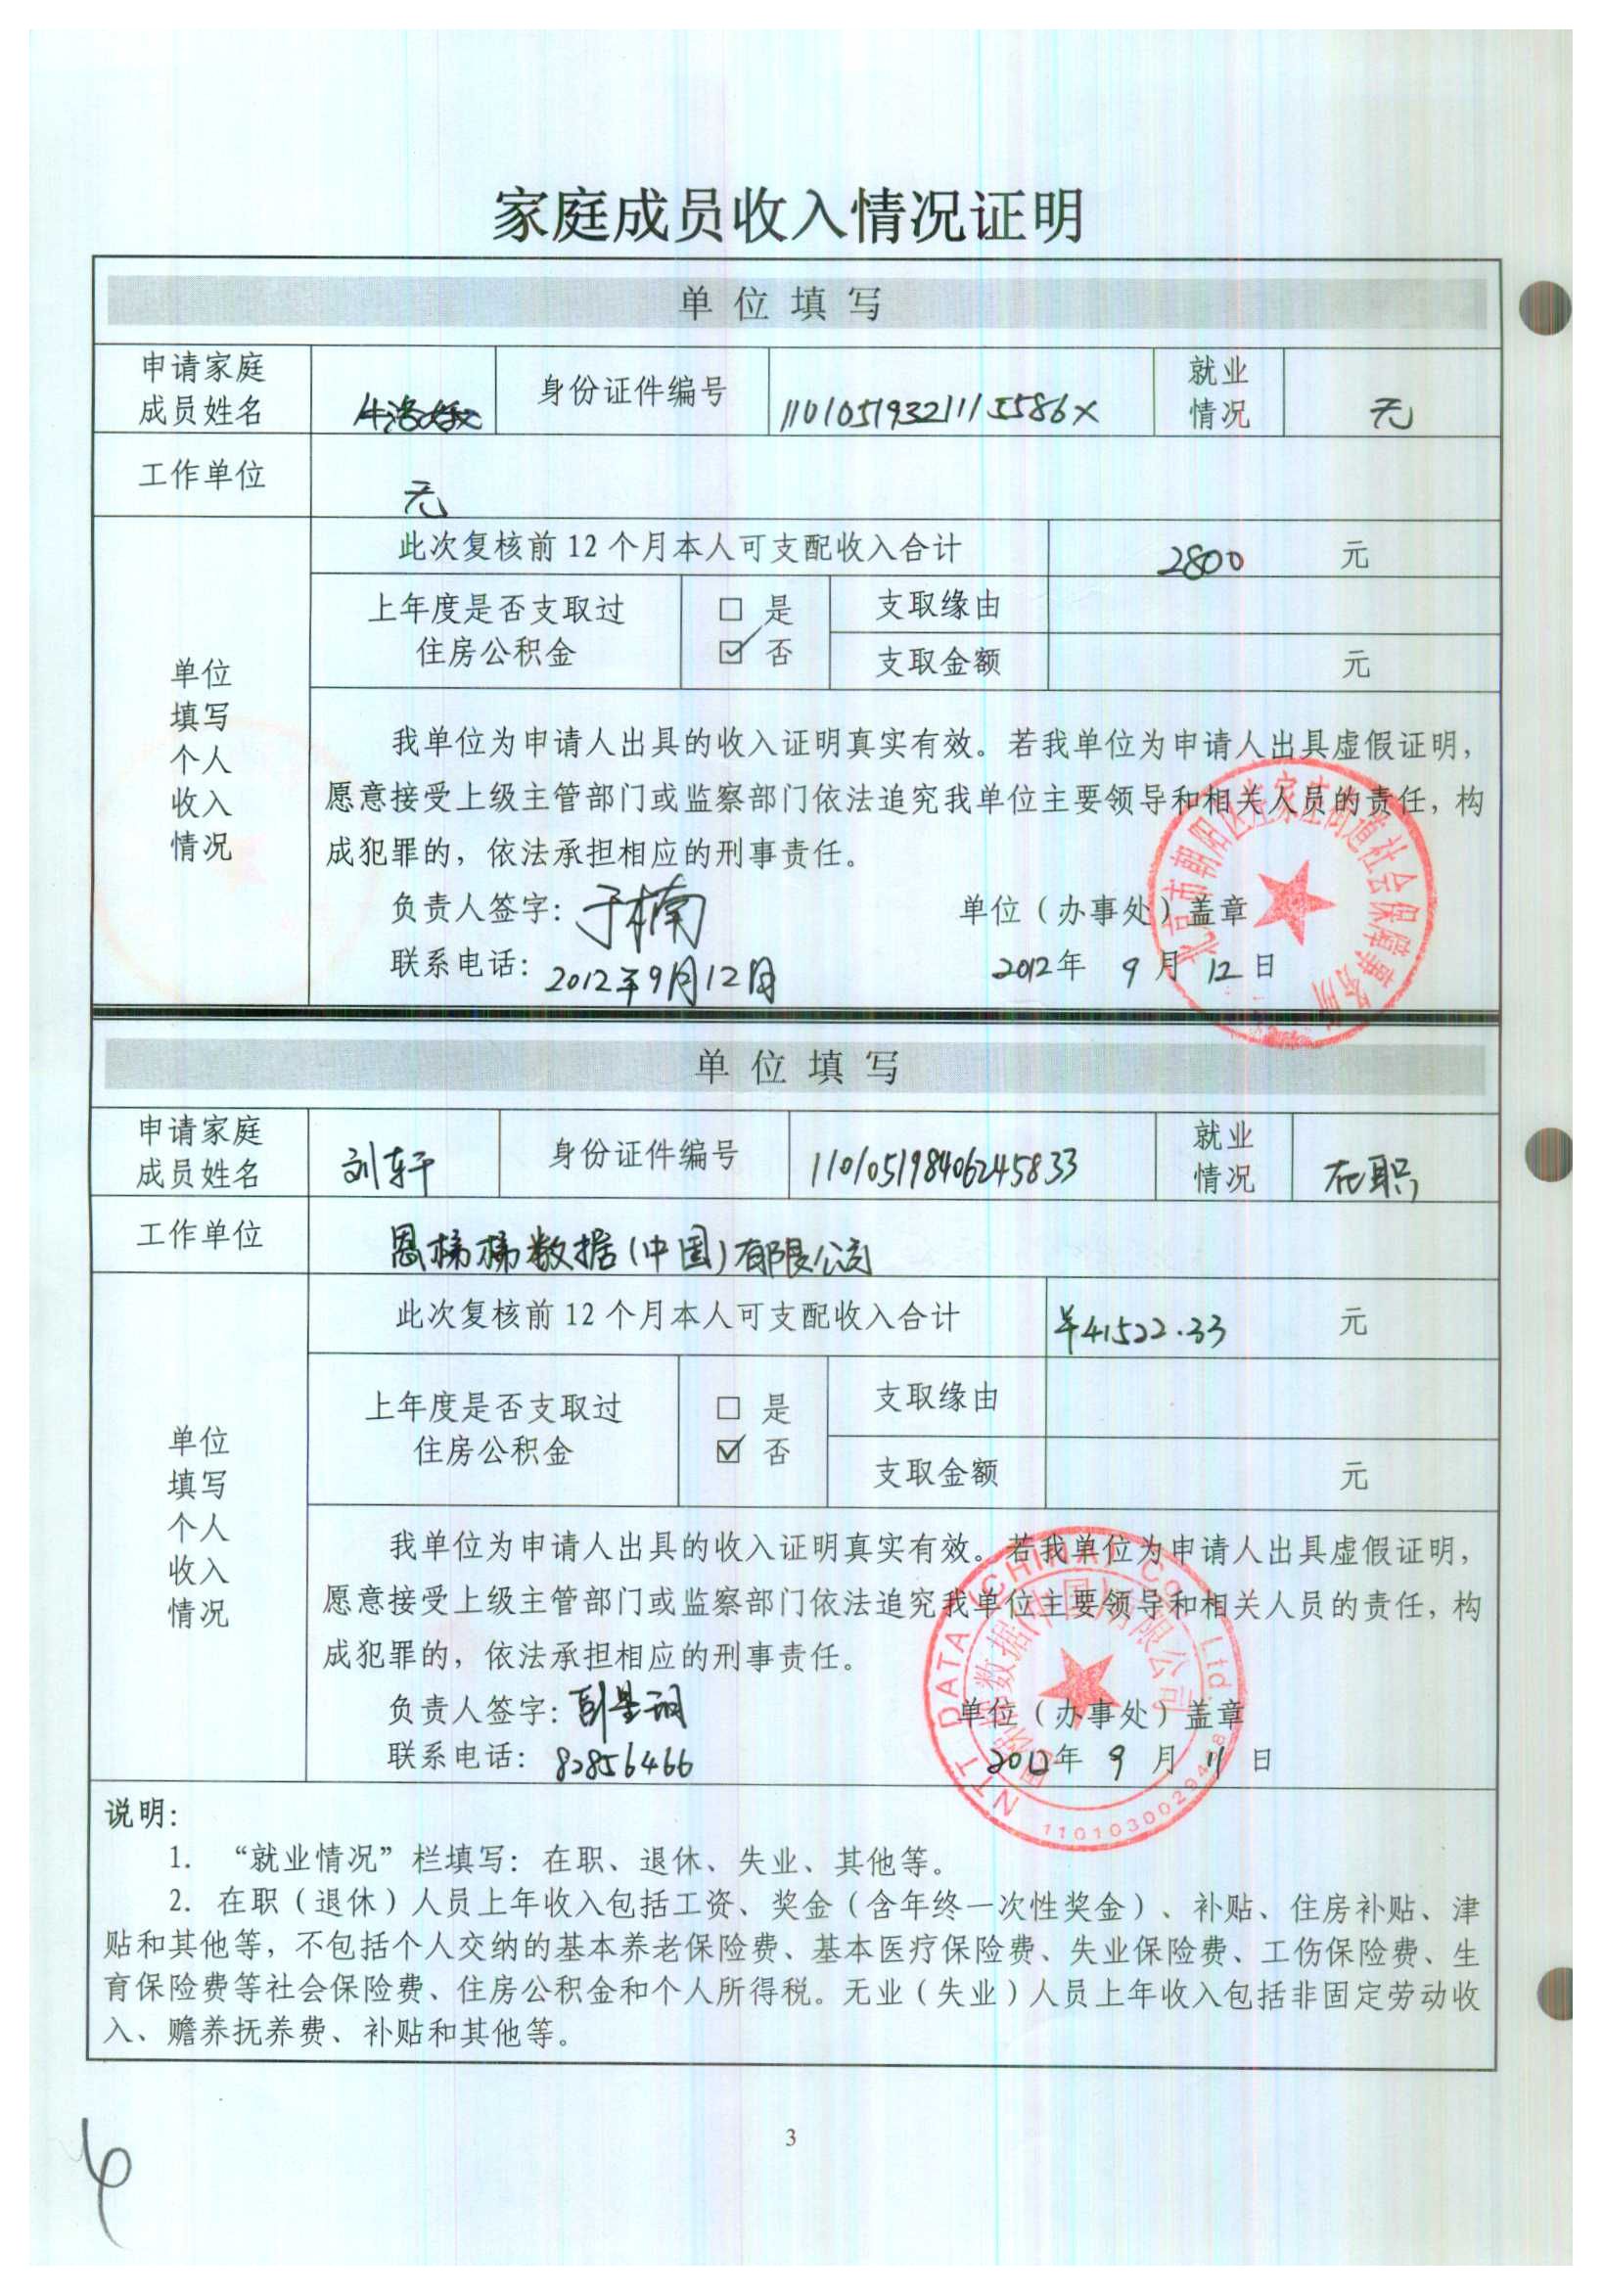 家庭成员收入情况证明
单位填写
申请家庭
成员姓名
身份证件编号
11010519321115586X
就业
情况
无
工作单位
无
单位
填写
个人
收入
情况
此次复核前12个月本人可支配收入合计
2800 元
上年度是否支取过
住房公积金
□ 是
☑ 否
支取缘由
支取金额
元
我单位为申请人出具的收入证明真实有效。若我单位为申请人出具虚假证明,
愿意接受上级主管部门或监察部门依法追究我单位主要领导和相关人员的责任,构
成犯罪的,依法承担相应的刑事责任。
负责人签字:于楠
单位(办事处)盖章
联系电话:2012年9月12日
2012年 9 月 12 日
北京市朝阳区左家庄街道社会保障事务所
单位填写
申请家庭
成员姓名
刘轩
身份证件编号
110105198406245833
就业
情况
在职
工作单位
恩梯梯数据(中国)有限公司
单位
填写
个人
收入
情况
此次复核前12个月本人可支配收入合计
¥41522.33 元
上年度是否支取过
住房公积金
□ 是
☑ 否
支取缘由
支取金额
元
我单位为申请人出具的收入证明真实有效。若我单位为申请人出具虚假证明,
愿意接受上级主管部门或监察部门依法追究我单位主要领导和相关人员的责任,构
成犯罪的,依法承担相应的刑事责任。
负责人签字:
单位(办事处)盖章
联系电话:82856466
2012年 9 月 11 日
NTT DATA (CHINA) Co., Ltd.
恩梯梯数据(中国)有限公司
说明:
1. “就业情况”栏填写:在职、退休、失业、其他等。
2. 在职(退休)人员上年收入包括工资、奖金(含年终一次性奖金)、补贴、住房补贴、津
贴和其他等,不包括个人交纳的基本养老保险费、基本医疗保险费、失业保险费、工伤保险费、生
育保险费等社会保险费、住房公积金和个人所得税。无业(失业)人员上年收入包括非固定劳动收
入、赡养抚养费、补贴和其他等。
3